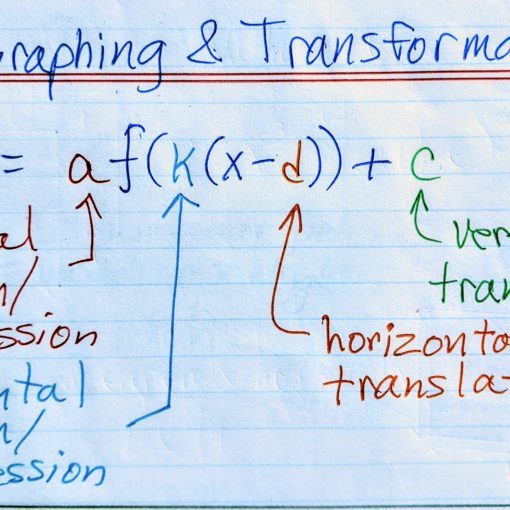 raphing & Transforma
= a f(k(x-d)) + c
al
n/
ession
ntal
n/
ession
ver
tran
horizonta
translat